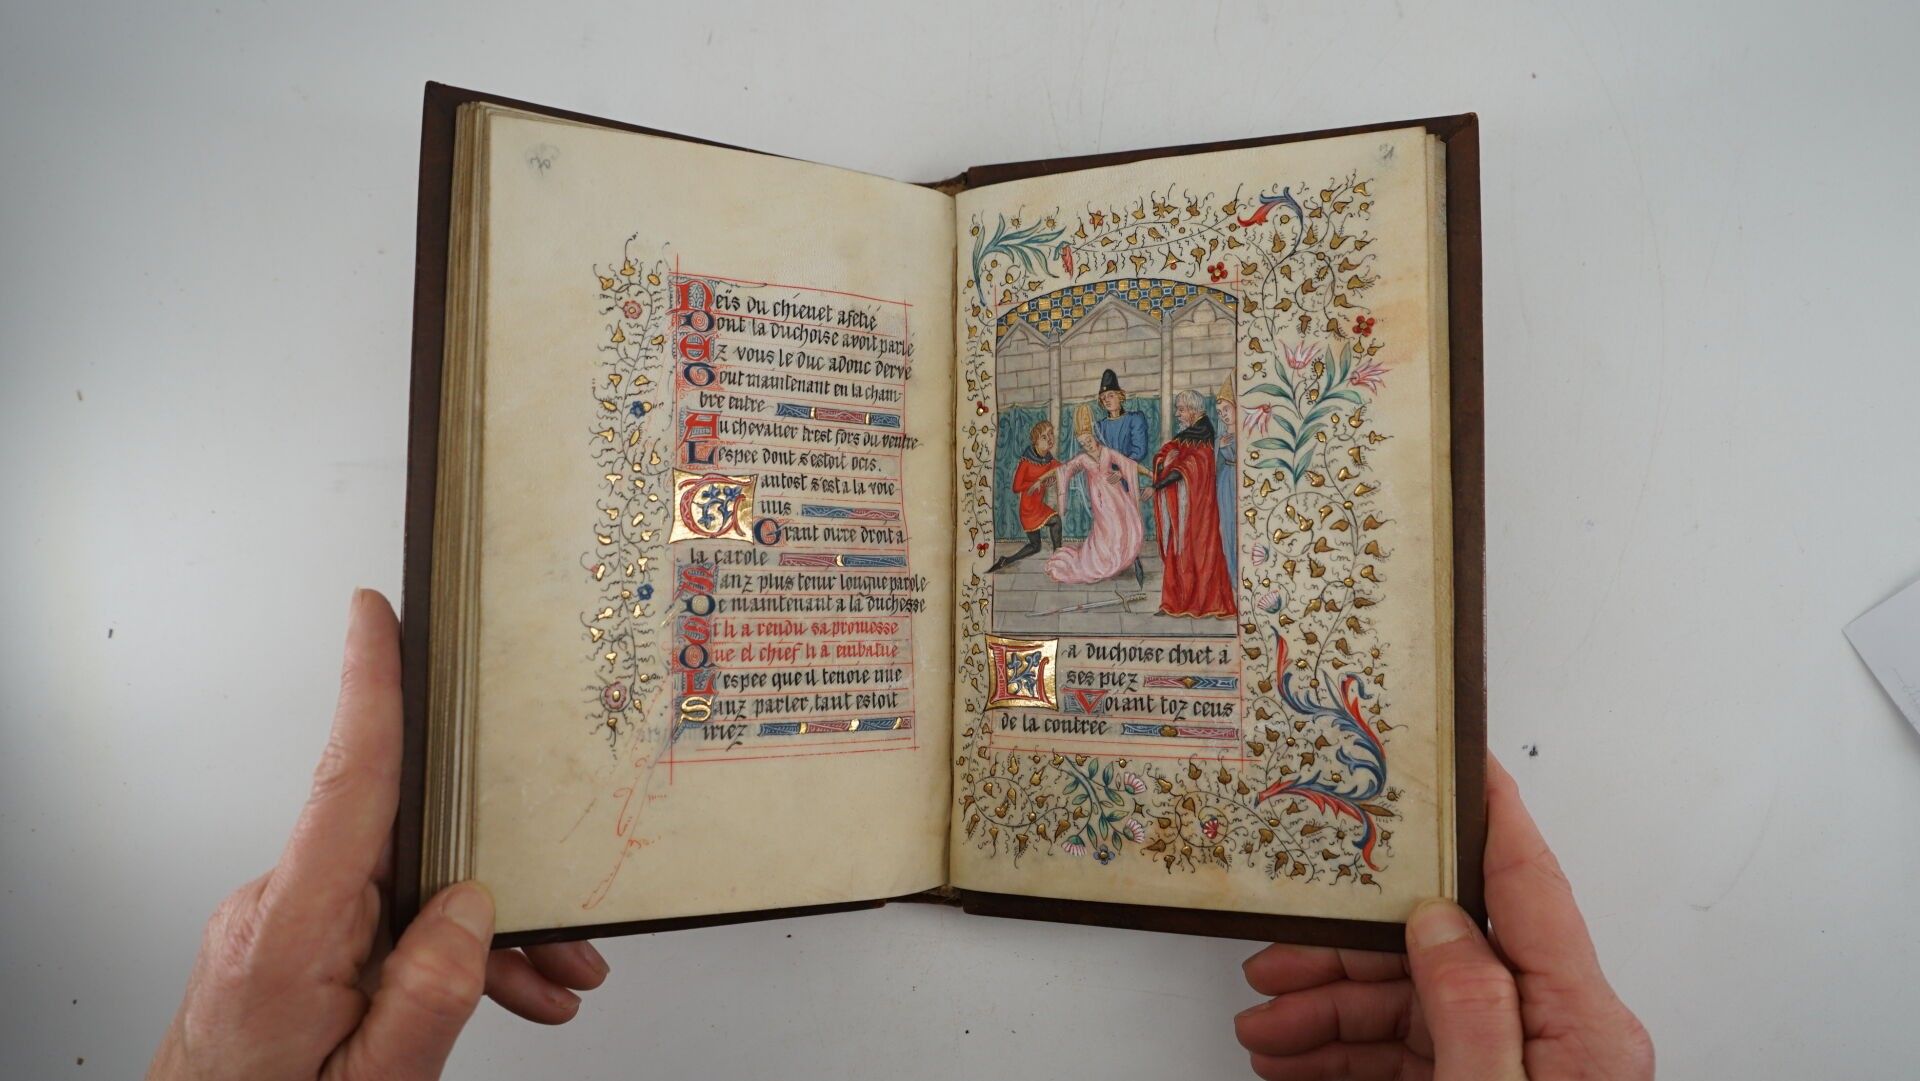 Neïs du chienet afetié
Dont la duchoise avoit parlé
Ez vous le duc adonc dervé
Tout maintenant en la cham
bre entre
Au chevalier trest fors du ventre
L'espee dont s'estoit ocis.
Tantost s'est a la voie
mis
Grant oirre droit a
la carole
Sanz plus tenir longue parole
De maintenant a la duchesse
Si li a rendu sa promesse
Que el chief li a embatue
L'espee que il tenoit nue
Sanz parler, tant estoit
iriez
La duchoise chiet a
ses piez
Voiant toz ceus
de la contree